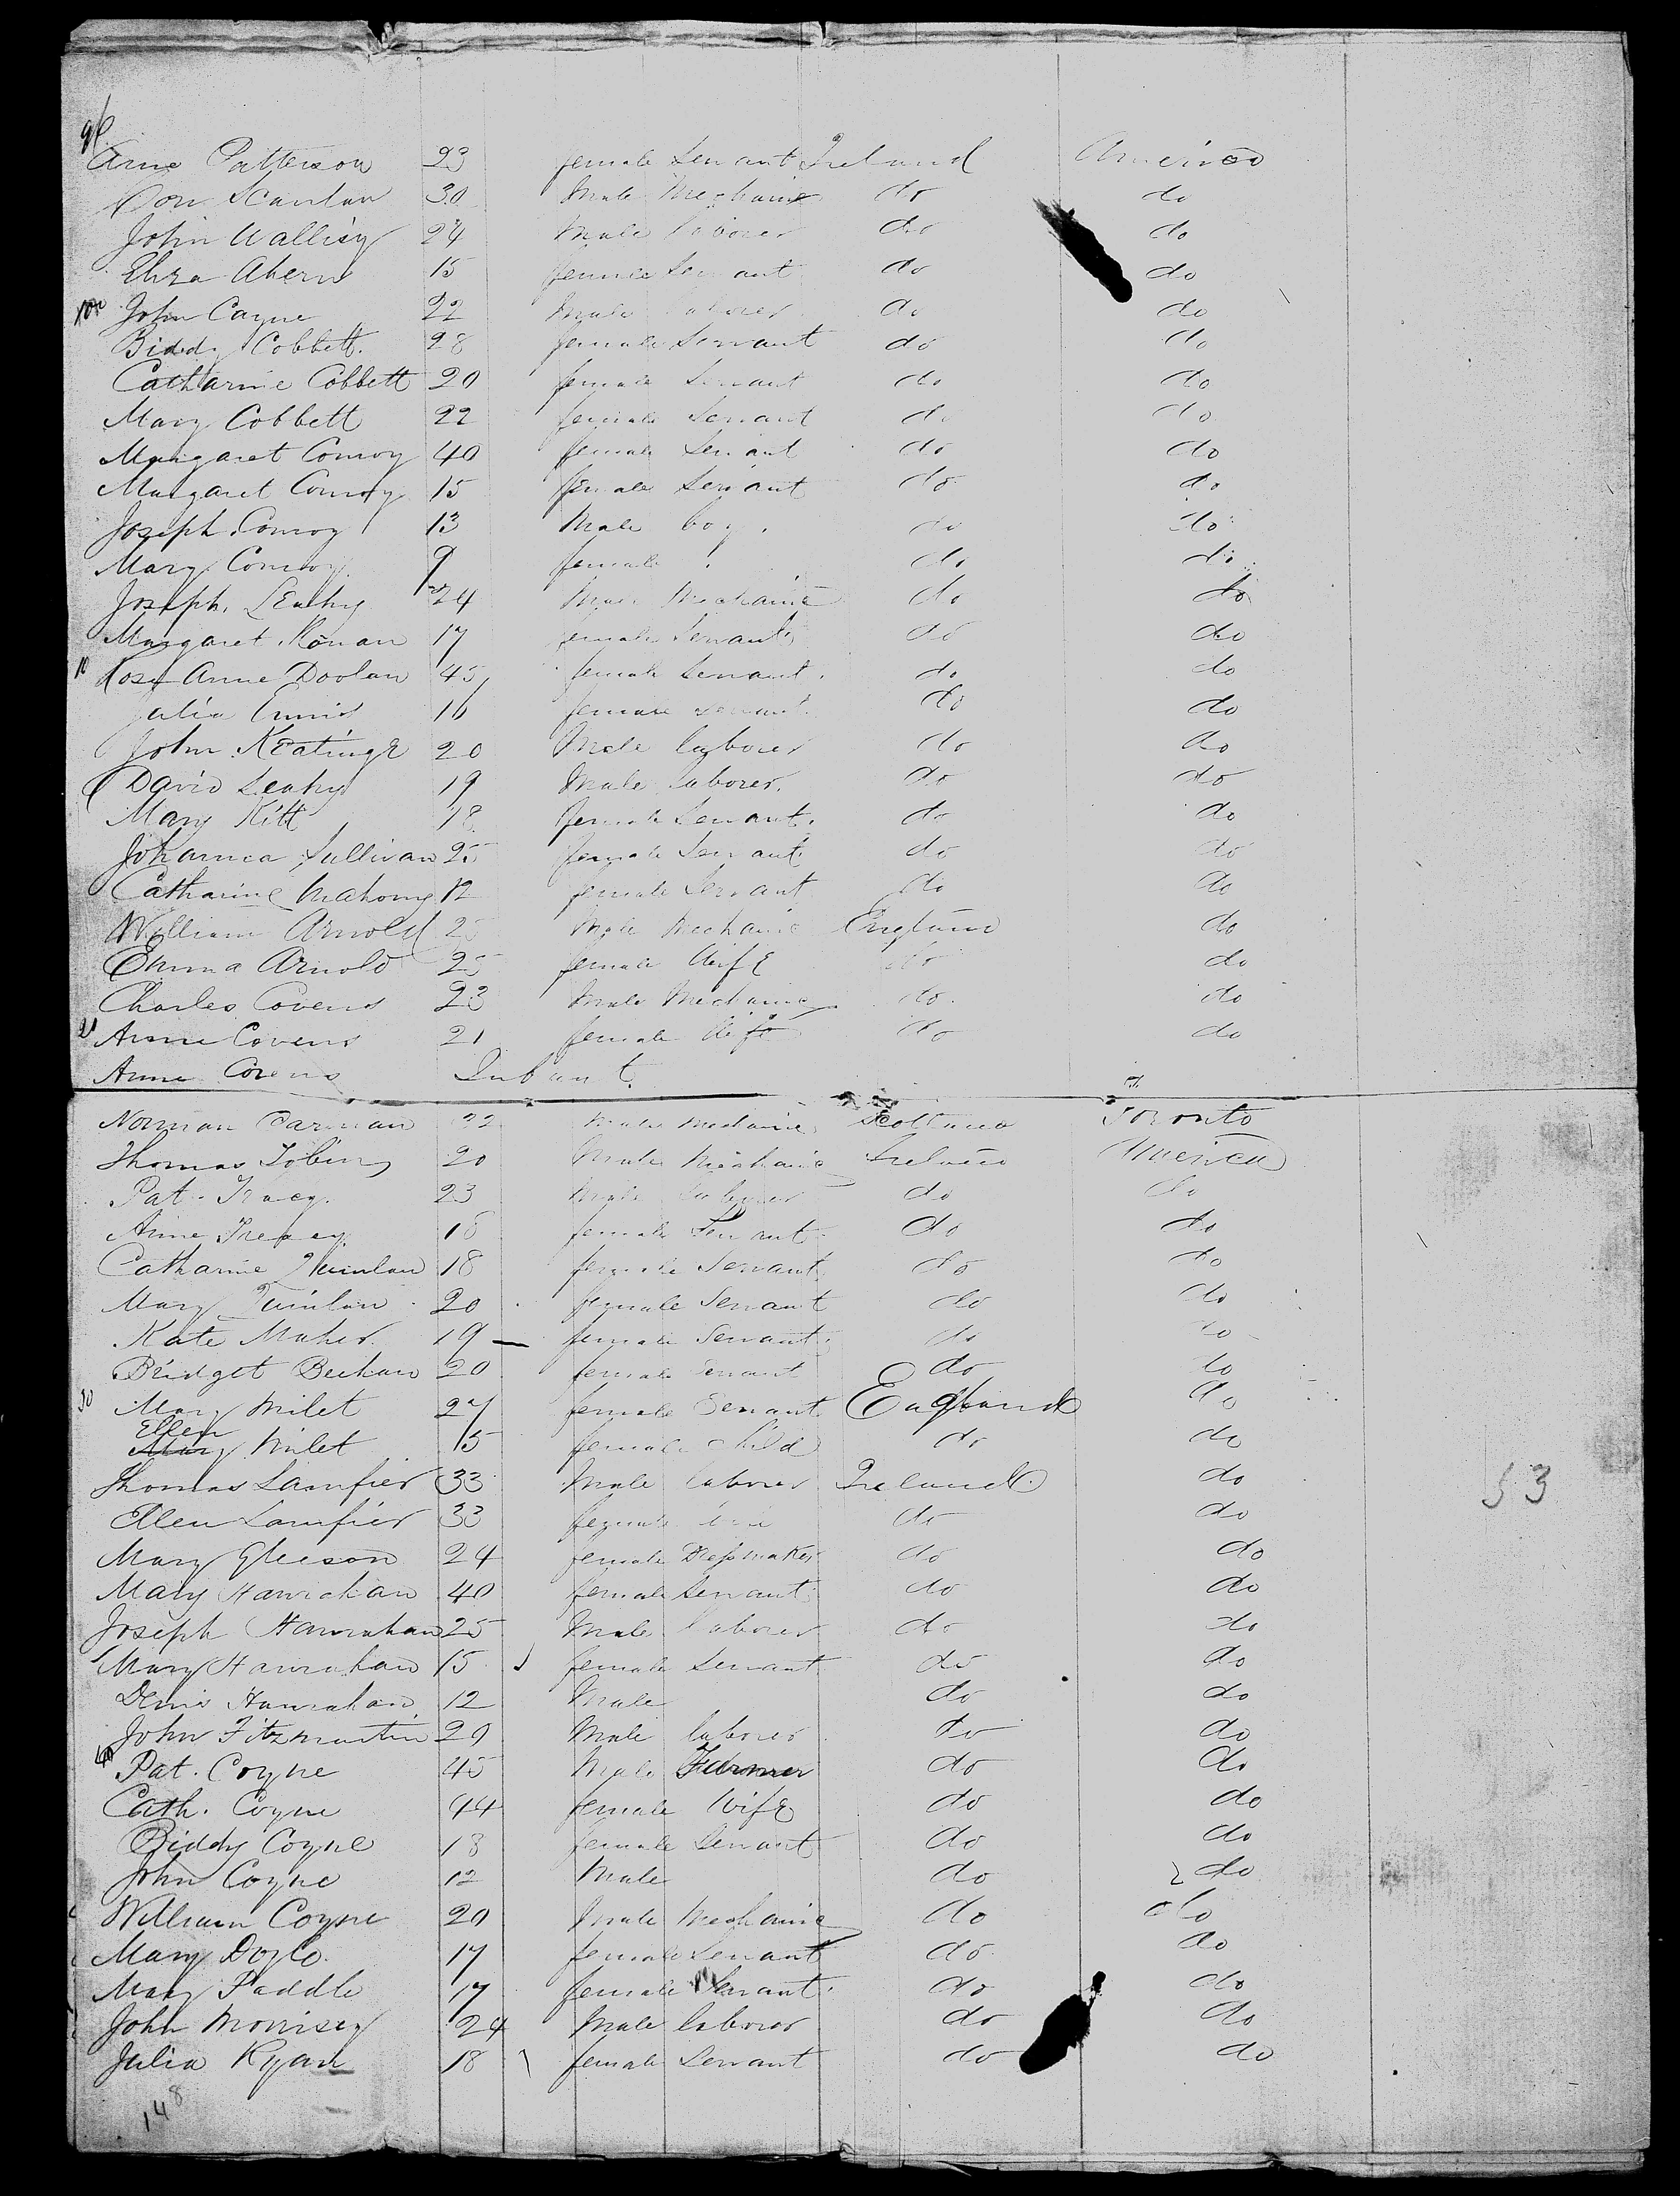 96
Anne Patterson 23 female Servant Ireland America
Con Scanlan 30 Male Mechanic do do
John Wallisy 24 Male laborer do do
Eliza Ahern 15 female Servant do do
100 John Cayne 22 Male laborer do do
Biddy Cobbett. 28 female Servant do do
Catharine Cobbett 20 female Servant do do
Mary Cobbett 22 female Servant do do
Margaret Conroy 40 female Servant do do
Margaret Conroy 15 female Servant do do
Joseph Conroy 13 Male boy. do do
Mary Conroy 9 female do do
Joseph Leahy 24 Male Mechanic do do
Margaret Ronan 17 female Servant do do
10 Rose Anne Doolan 45 female Servant. do do
Julia Ennis 16 female servant do do
John Keatinge 20 Male laborer do do
David Leahy 19 Male laborer. do do
Mary Kitt 18 female Servant. do do
Johanna Sullivan 25 female Servant do do
Catharine Mahony 12 female Servant do do
William Arnold 25 Male Mechanic England do
Emma Arnold 25 female Wife do do
Charles Covens 23 Male Mechanic do. do
Anne Covens 21 female Wife do do
Anne Covens Infant.
Norman Carman 22 Male Mechanic Scotland Toronto
Thomas Tobin 20 Male Mechanic Ireland America
Pat. Tracy. 23 Male laborer do do
Anne Treacy. 18 female Servant do do
Catharine Quinlan 18 female Servant do do
Mary Quinlan 20 female Servant do do
Kate Maher. 19 female Servant do do
Bridget Beehan 20 female Servant do do
30 Mary Milet 27 female Servant England do
Ellen Milet 15 female child do do
Thomas Lamfier 33 Male laborer Ireland do
53
Ellen Lamfier 33 female do do
Mary Gleeson 24 female Dressmaker do do
Mary Hanrahan 40 female Servant do do
Joseph Hanrahan 25 Male laborer do do
Mary Hanrahan 15 female Servant do do
Denis Hanrahan 12 Male do do
John Fitzmartin 20 Male laborer do do
40 Pat. Coyne 45 Male Farmer do do
Cath. Coyne 44 female Wife do do
Biddy Coyne 18 female Servant do do
John Coyne 12 Male do do
William Coyne 20 Male Mechanic do do
Mary Doyle. 17 female Servant do do
Mary Paddle 17 female Servant. do do
John Morrisey 24 Male laborer do do
Julia Ryan 18 female Servant do do
148